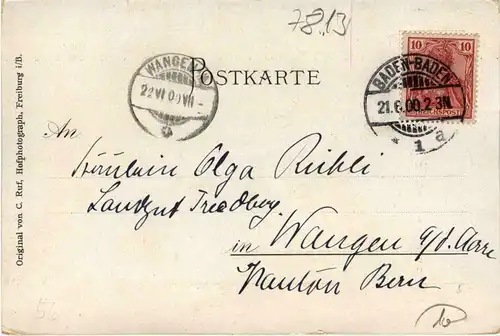 78.13
10
WANGEN
22 VI 00 VII -
POSTKARTE
BADEN-BADEN
21.6.00.2-3N.
* 1 a
An
Fräulein Olga Rikli
Landgut Friedberg
in Wangen a/d. Aare
Kanton Bern
Original von C. Ruf, Hofphotograph, Freiburg i/B.